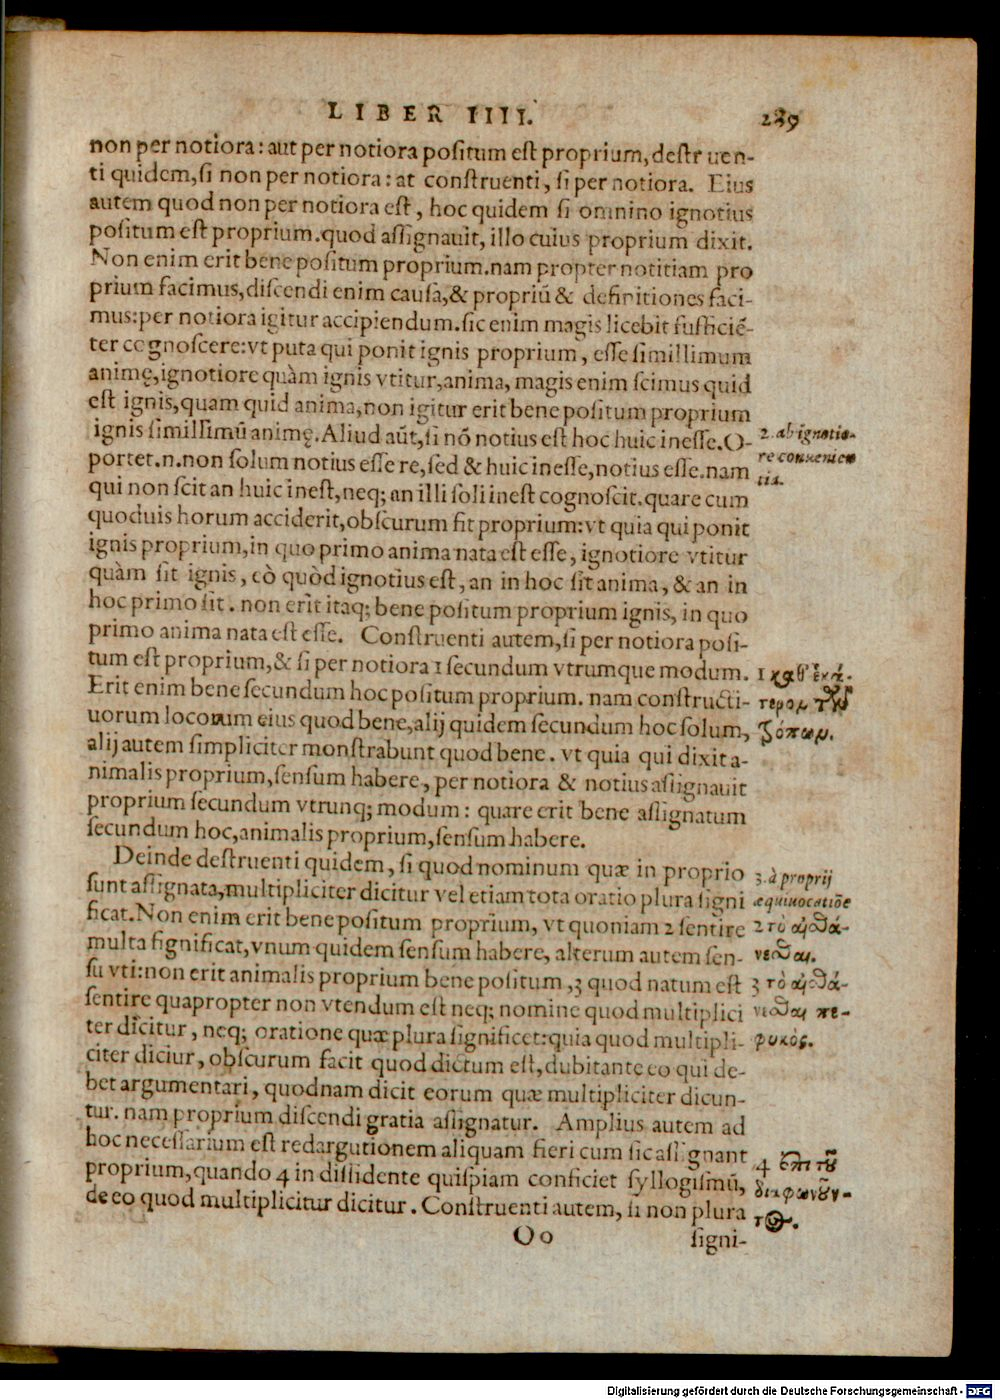 LIBER IIII. 289
non per notiora: aut per notiora poſitum eſt proprium, deſtruen-
ti quidem, ſi non per notiora: at conſtruenti, ſi per notiora. Eius
autem quod non per notiora eſt, hoc quidem ſi omnino ignotius
poſitum eſt proprium. quod aſſignauit, illo cuius proprium dixit.
Non enim erit bene poſitum proprium. nam propter notitiam pro
prium facimus, diſcendi enim cauſa, & propriũ & definitiones faci-
mus: per notiora igitur accipiendum. ſic enim magis licebit ſufficiẽ-
ter cognoſcere: vt puta qui ponit ignis proprium, eſſe ſimillimum
animę, ignotiore quàm ignis vtitur, anima, magis enim ſcimus quid
eſt ignis, quam quid anima, non igitur erit bene poſitum proprium
ignis ſimillimũ animę. Aliud aũt, ſi nõ notius eſt hoc huic ineſſe. O-
portet .n. non ſolum notius eſſe re, ſed & huic ineſſe, notius eſſe. nam
qui non ſcit an huic ineſt, neq; an illi ſoli ineſt cognoſcit. quare cum
quoduis horum acciderit, obſcurum fit proprium: vt quia qui ponit
ignis proprium, in quo primo anima nata eſt eſſe, ignotiore vtitur
quàm ſit ignis, eò quòd ignotius eſt, an in hoc ſit anima, & an in
hoc primo ſit. non erit itaq; bene poſitum proprium ignis, in quo
primo anima nata eſt eſſe. Conſtruenti autem, ſi per notiora poſi-
tum eſt proprium, & ſi per notiora 1 ſecundum vtrumque modum.
Erit enim bene ſecundum hoc poſitum proprium. nam conſtructi-
uorum locorum eius quod bene, alij quidem ſecundum hoc ſolum,
alij autem ſimpliciter monſtrabunt quod bene. vt quia qui dixit a-
nimalis proprium, ſenſum habere, per notiora & notius aſſignauit
proprium ſecundum vtrunq; modum: quare erit bene aſſignatum
ſecundum hoc, animalis proprium, ſenſum habere.
Deinde deſtruenti quidem, ſi quod nominum quæ in proprio
ſunt aſſignata, multipliciter dicitur vel etiam tota oratio plura ſigni
ficat. Non enim erit bene poſitum proprium, vt quoniam 2 ſentire
multa ſignificat, vnum quidem ſenſum habere, alterum autem ſen-
ſu vti: non erit animalis proprium bene poſitum, 3 quod natum eſt
ſentire quapropter non vtendum eſt neq; nomine quod multiplici
ter dicitur, neq; oratione quæ plura ſignificet: quia quod multipli-
citer diciur, obſcurum facit quod dictum eſt, dubitante eo qui de-
bet argumentari, quodnam dicit eorum quæ multipliciter dicun-
tur. nam proprium diſcendi gratia aſſignatur. Amplius autem ad
hoc neceſſarium eſt redargutionem aliquam fieri cum ſic aſſignant
proprium, quando 4 in diſſidente quiſpiam conficiet ſyllogiſmũ,
de eo quod multiplicitur dicitur. Conſtruenti autem, ſi non plura
Oo ſigni-
2. ab ignotio-
re conuenien
tia.
1 καθ' ἑκά-
τερον τῶν
τρόπων.
3. à proprij
æquiuocatiõe
2 τὸ αἰσθά-
νεσθαι.
3 τὸ αἰσθά-
νεσθαι πε-
φυκός.
4 ἐπὶ τοῦ
διαφωνοῦν-
τος.
Digitalisierung gefördert durch die Deutsche Forschungsgemeinschaft - DFG